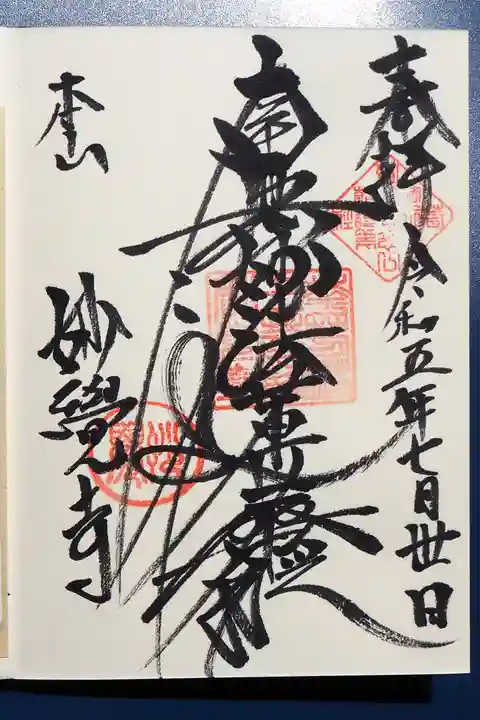 奉拝 令和五年七月卅日
南無妙法蓮華経
本山
妙覺寺